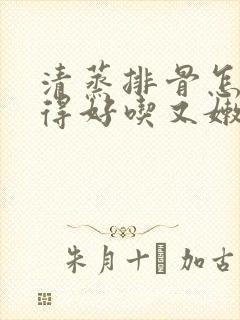 清蒸排骨怎
得好喫又嫩
朱月十 加古